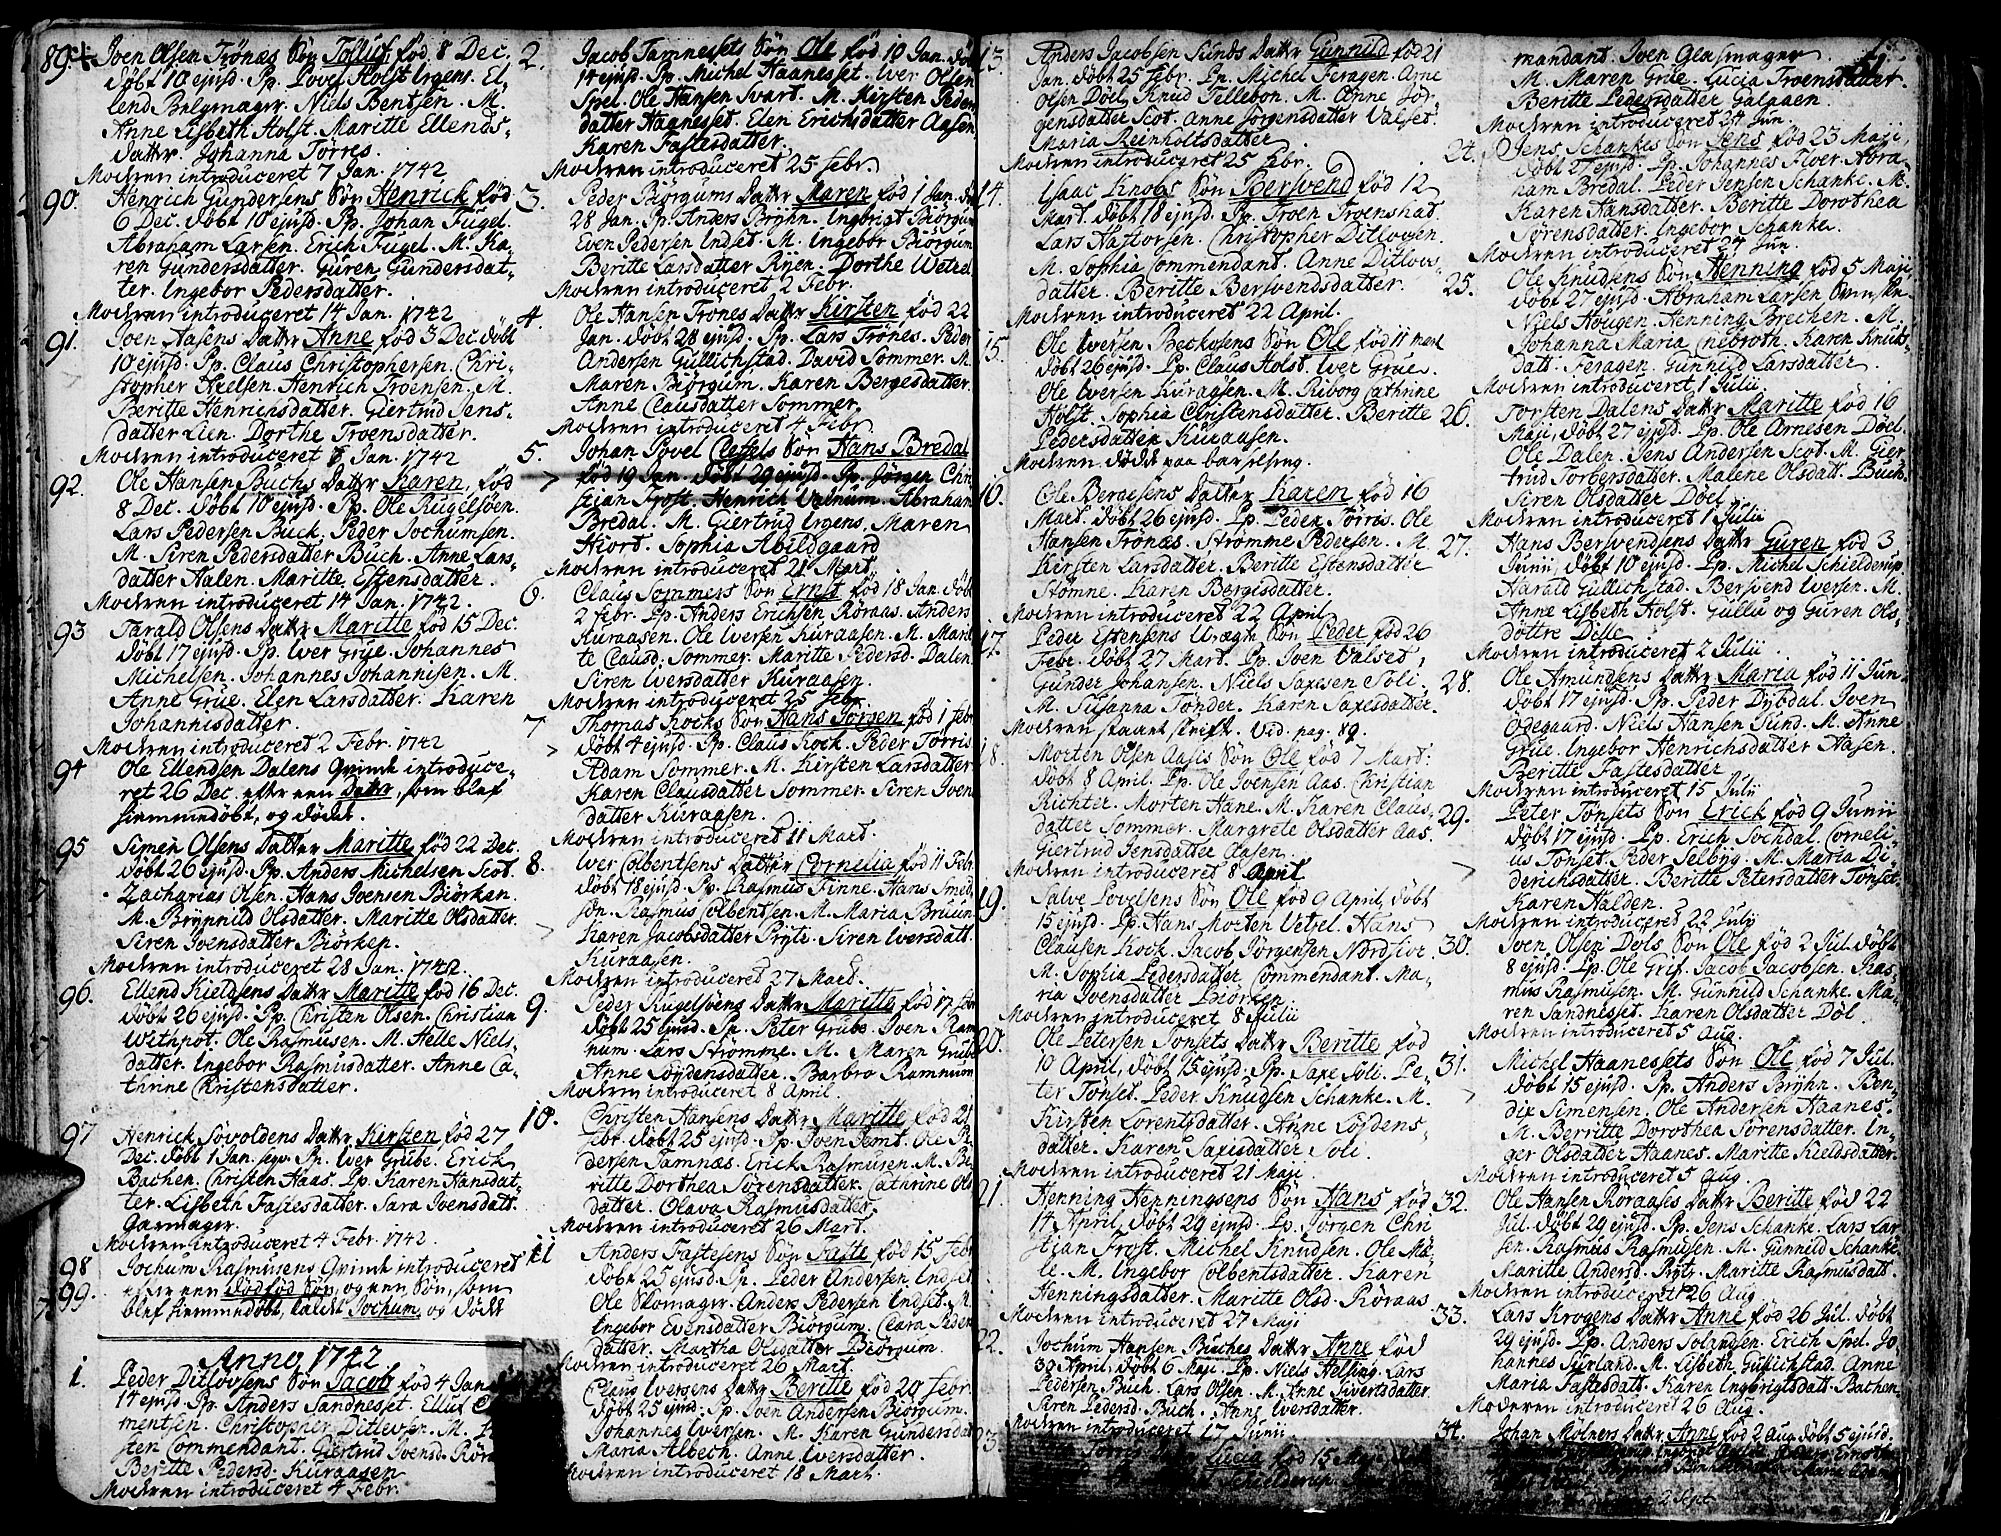 89. Joen Olsen Trönæs Sön Tolluf föd 8 Dec.
döbt 10 ejusd. Pp. Lovel Holst Irgens. El-
lend Belgmager. Niels Bentsen. M.
Anne Lisbeth Holst. Maritte Ellends-
datter. Johanna Törres.
Moderen introduceret 7 Jan. 1742
90. Henrich Gundersens Sön Henrick föd
6 Dec. döbt 10 ejusd. Pp. Johan Fugel.
Abraham Larsen. Erich Fugel. M. Ka-
ren Gundersdatter. Guren Gundersdat-
ter. Ingebor Pedersdatter.
Moderen introduceret 14 Jan. 1742
91. Joen Aasens Datter Anne föd 3 Dec. döbt
10 ejusd. Pp. Claus Christophersen. Chri-
stopher Axelsen. Henrich Troensen. M.
Beritte Henrichsdatter. Giertrud Jens-
datter Lien. Dorthe Troensdatter.
Moderen introduceret Jan. 1742
92. Ole Hansen Buchs Datter Karen, föd
8 Dec. döbt 10 ejusd. Pp. Ole Rugelsöen.
Lars Pedersen Buck. Peder Jochumsen.
M. Siren Pedersdatter Buch. Anne Lars-
datter Aalen. Maritte Estensdatter.
Moderen introduceret 14 Jan. 1742.
93 Tarald Olsens Datter Maritte föd 15 Dec.
döbt 17 ejusd. Pp. Iver Grue. Johannes
Michelsen. Johannes Johannisen. M.
Anne Grue. Elen Larsdatter. Karen
Johannisdatter.
Moderen introduceret 2 Febr. 1742
94 Ole Ellendsen Dalens Qvinde introduce-
ret 26 Dec. efter een Datter, som blef
hiemmedöbt, og döde.
95 Simen Olsens Datter Maritte föd 22 Dec.
döbt 26 ejusd. Pp. Anders Michelsen Scot.
Zacharias Olsen. Hans Joensen Biörkan.
M. Brynnild Olsdatter. Maritte Olsdatter.
Siren Joensdatter Biörken.
Moderen introduceret 28 Jan. 1742.
96. Ellend Kieldsens Datter Maritte föd 16 Dec.
döbt 26 ejusd. Pp. Christen Olsen. Christian
Wethpot. Ole Rasmusen. M. Helle Niels-
datter. Ingebor Rasmusdatter. Anne Ca-
thrine Christensdatter.
97 Henrick Sövoldens Datter Kirsten föd 27
Dec. döbt 1 Jan. seqv. Pp. Iver Grube. Erick
Bachen. Christen Haas. Pp. Karen Hansdat-
ter. Lisbeth Fastesdatter. Sara Joensdatt.
Garmager.
Moderen introduceret 4 Febr. 1742.
98 Jochum Rasmusens Qvinde introduceret
99. efter een dödföd Sön, og een Sön, som
blef hiemmedöbt, kaldt Jochum, og döde
Anno 1742
1. Peder Ditlovsens Sön Jacob föd 4 Jan.
14 ejusd. Pp. Anders Sandnesset. Elluf
mentsen. Christopher Ditlevsen. M.
sten Commendant. Giertrud Joensd. Röra
Beritte Pedersd. Kuraasen
Moderen introduceret 4 Febr.
2. Jacob Tamnessets Sön Ole föd 10 Jan. döbt
14 ejusd. Pp. Michel Haanesset. Iver Olsen
Spel. Ole Hansen Svart. M. Kirsten Peders-
datter Haanesset. Elen Erichsdatter Aasen
Karen Fastesdatter.
Moderen introduceret 25 Febr.
3. Peder Biörgums Datter Maren föd 1 Jan. döbt
28 Jan. Pp. Anders Bryhn. Ingbrigt Biörgum
Even Pedersen Indset. M. Ingebor Biörgum
Beritte Larsdatter Ryen. Dorthe Wetzel
Moderen introduceret 2 Febr.
4. Ole Hansen Trönes Datter Kirsten föd 22
Jan. döbt 28 ejusd. Pp. Lars Trönes. Peder
Andersen Gullichstad. David Sommer. M.
Maren Biörgum. Karen Bergesdatter.
Anne Clausdatter Sommer.
Moderen introduceret 4 Febr.
5. Johan Povel Cleffels Sön Hans Bredal
föd 19 Jan. döbt 29 ejusd. Pp. Jörgen Chri
stian Frost. Henrich Velnum. Abraham
Bredal. M. Giertrud Irgens. Maren
Hiort. Sophia Abildgaard
Moderen introduceret 21 Mart.
6. Claus Sommers Sön Ernst föd 18 Jan. döbt
2 Febr. Pp. Anders Erichsen Röraas. Anders
Kuraasen. Ole Iversen Kuraasen. M. Marit
te Clausd. Sommer. Maritte Pedersd. Dalen
Siren Iversdatter Kuraasen.
Moderen introduceret 25 Febr.
7 Thomas Kocks Sön Hans Jörgen föd 1 Febr.
döbt 4 ejusd. Pp. Claus Kock. Peder Törris
Adam Sommer. M. Kirsten Larsdatter
Karen Clausdatter Sommer. Siren Joens
datter Kuraasen.
Moderen introduceret 11 Mart.
8. Iver Colbentsens Datter Cornelia föd 11 Febr.
döbt 18 ejusd. Pp. Rasmus Finne. Hans Smed
sön. Rasmus Colbentsen. M. Maria Bruun
Karen Jacobsdatter Prytz. Siren Iversdatt.
Kuraasen.
Moderen introduceret 27 Mart.
9. Peder Rugelsöens Datter Maritte föd 17 Febr
döbt 25 ejusd. Pp. Peter Grube. Joen Ram
hum. Lars Strömme. M. Maren Grube
Anne Löydensdatter. Barbro Ramnum
Moderen introduceret 8 April.
10. Christen Hansens Datter Maritte föd 21
Febr. döbt 25 ejusd. Pp. Joen Jemt. Ole Pe
dersen Tamnæs. Erick Rasmusen. M. Be
ritte Dorthea Sörensdatter. Cathrine Ols
datter. Olava Rasmusdatter.
Moderen introduceret 26 Mart.
11 Anders Fastesens Sön Faste föd 15 Febr
döbt 25 ejusd. Pp. Peder Andersen Indset
Ole Skomager. Anders Pedersen Indset. M.
Ingebor Evensdatter Biörgum. Clara Peders
datter. Martha Olsdatter Biörgum.
Moderen introduceret 26 Mart.
Claus Iversens Datter Beritte föd 20 Febr
döbt 25 ejusd. Pp. Joen Andersen Biörgum.
Johannes Iversen. M. Karen Gundersdat
Maria Albech. Anne Iversdatter.
Moderen introduceret 18 Mart.
13. Anders Jacobsen Sunds Datter Gunnild föd 21
Jan. döbt 25 Febr. Pp. Michel Feragen. Arne
Olsen Döel. Knud Tellebon. M. Anne Jör-
gensdatter Scot. Anne Jörgensdatter Valset.
Maria Reinholtsdatter.
Moderen introduceret 25 Febr.
14. Isaac Knobs Sön Bersvend föd 12
Mart. döbt 18 ejusd. Pp. Troen Troenstad.
Lars Hastorsen. Christopher Ditlovsen.
M. Sophia Commendant. Anne Ditlovs-
datter. Beritte Bersvendsdatter.
Moderen introduceret 22 April.
15. Ole Iversen Beckosens Sön Ole föd 11 Mart
döbt 26 ejusd. Pp. Claus Holst. Iver Grue.
Ole Iversen Kuraasen. M. Riborg Cathrine
Holst. Sophia Christensdatter. Beritte
Pedersdatter Kuraasen.
Moderen döde paa barselseng.
16. Ole Bergesens Datter Karen föd 16
Mart. döbt 26 ejusd. Pp. Peder Törris. Ole
Hansen Trönæs. Strömme Pedersen. M.
Kirsten Larsdatter. Beritte Estensdatter
Stömne. Karen Bergesdatter.
Moderen introduceret 22 April
17. Peder Estensens Sön Peder föd 26
Febr. döbt 27 Mart. Pp. Joen Valset,
Gunder Johansen. Niels Saxesen Soli.
M. Susanna Tönder. Karen Saxesdatter.
Moderen staaet skrift. Vid. pag. 89.
18. Morten Olsen Aases Sön Ole föd 7 Mart:
döbt 8 April. Pp. Ole Joensen Aas. Christian
Richter. Morten Aane. M. Karen Claus-
datter Sommer. Margrete Olsdatter Aas.
Giertrud Jensdatter Aasen.
Moderen introduceret 8 April
19. Salve Povelsens Sön Ole föd 9 April, döbt
15 ejusd. Pp. Hans Morten Vetzel. Hans
Clausen Kock. Jacob Jörgensen Nordstoe.
M. Sophia Pedersdatter Commendant. Ma-
ria Joensdatter Biörken.
Moderen introduceret 8 Julii
20. Ole Petersen Tönsets Datter Beritte föd
10 April, döbt 15 ejusd. Pp. Saxe Soli. Pe-
ter Tönset. Peder Knudsen Schanke. M.
Kirsten Lorentzdatter. Anne Löydens-
datter. Karen Saxisdatter Soli.
Moderen introduceret 21 Maji
21. Henning Henningsens Sön Hans föd
14 April, döbt 29 ejusd. Pp. Jörgen Chri
stian Frost. Michel Knudsen. Ole Mö-
le. M. Ingebor Colbentsdatter. Karen
Henningsdatter. Maritte Olsd. Röraas
Moderen introduceret 27 Maji
22. Jochum Hansen Buches Datter Anne föd
30 April, döbt 6 Maji. Pp. Niels Helsing. Lars
Pedersen Buch. Lars Olsen. M. Anne Sivertsdatter
Siren Pedersd. Buch. Anne Iversdatter.
Moderen introduceret 17 Junii
23. Lucia föd 15 Maji
mandant. Joen Glasmager
M. Maren Grue. Lucia Troensdatter.
Beritte Pedersdatter Galaaen.
Moderen introduceret 24 Jun.
24. Jens Schankes Sön Jens föd 23 Maji,
döbt 27 ejusd. Pp. Johannes Floer. Abra-
ham Bredal. Peder Jensen Schanke. M.
Karen Hansdatter. Beritte Dorothea
Sörensdatter. Ingebor Schanke.
Moderen introduceret 24 Jun.
25. Ole Knudsens Sön Henning föd 5 Maji
döbt 27 ejusd. Abraham Larsen
Niels Hougen. Henning Brechen. M.
Johanna Maria Cnebroth. Karen Knuts-
datt. Feragen. Gunnild Larsdatter.
Moderen introduceret 1 Julii
26. Torsten Dalens Datter Maritte föd 16
Maji, döbt 27 ejusd. Pp. Ole Arnesen Döel.
Ole Dalen. Jens Andersen Scot. M. Gier
trud Torbersdatter. Malene Olsdatt. Buch.
Siren Olsdatter Döel.
Moderen introduceret 1 Julii
27. Hans Bersvendsens Datter Guren föd 3
Junii, döbt 10 ejusd. Pp. Michel Schielderup
Harald Gullichstad. Bersvend Iversen. M.
Anne Lisbeth Holst. Gullu og Guren Ols-
döttre Dille
Moderen introduceret 2 Julii
28. Ole Amundsens Datter Maria föd 11 Jun.
döbt 17 ejusd. Pp. Peder Dybdal. Joen
Odegaard. Niels Hansen Sund. M. Anne
Grue. Ingebor Henrichsdatter Aasen.
Beritte Fastesdatter
Moderen introduceret 15 Julii
29. Peter Tönsets Sön Erick föd 9 Junii
döbt 17 ejusd. Pp. Erich Sochdal. Corneli-
us Tönset. Peder Selbyg. M. Maria Di-
derichsdatter. Beritte Petersdatter Tönset.
Karen Halden.
Moderen introduceret 22 July
30. Joen Olsen Döls Sön Ole föd 2 Jul. döbt
8 ejusd. Pp. Ole Grif. Jacob Jacobsen. Ras-
mus Rasmusen. M. Gunnild Schanke. Ma-
ren Sandnesset. Karen Olsdatter Döl.
Moderen introduceret 5 Aug.
31. Michel Haanessets Sön Ole föd 7 Jul.
döbt 15 ejusd. Pp. Anders Bryhn. Ben-
dix Simensen. Ole Andersen Haanes.
M. Berritte Dorothea Sörensdatter. In-
ger Olsdatter Haanes. Maritte Kieldsdatter
Moderen introduceret 5 Aug.
32. Ole Hansen Roraases Datter Beritte föd 22
Jul. döbt 29 ejusd. Pp. Jens Schanke. Lars Lar
sen. Rasmus Rasmusen. M. Gunnild Schanke.
Maritte Andersd. Prytz. Maritte Rasmusdatt.
Moderen introduceret 26 Aug
33. Lars Krogens Datter Anne föd 26 Jul. döbt
29 ejusd. Pp. Anders Solandsen. Erich Spel. Jo
hannes Surland. M. Lisbeth Gullichstad. Anne
Maria Fastesdatt. Karen Ingbrigtsdatt. Bachen
Moderen introduceret 26 Aug.
34. Johan Mölners Datter Anne föd 2 Aug. döbt 5 ejusd.
2 Sept.